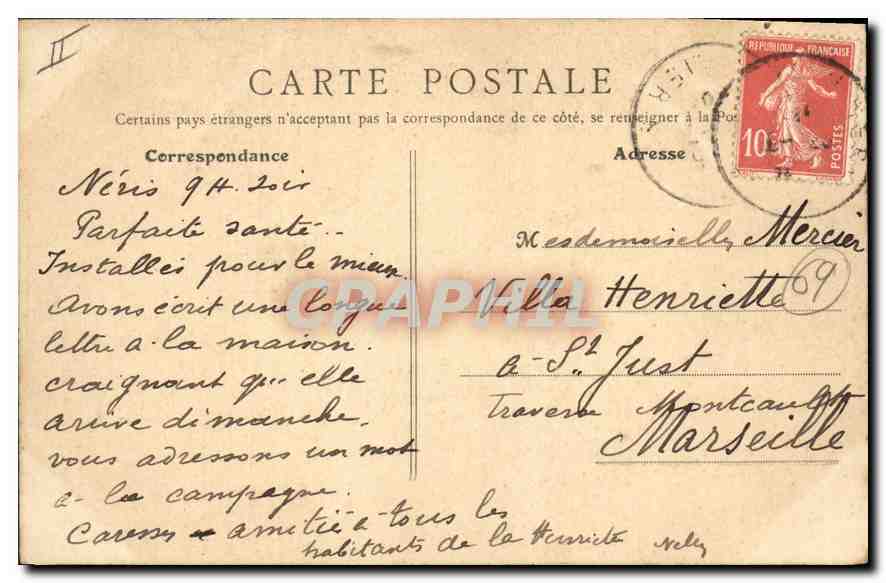 II
CARTE POSTALE
Certains pays étrangers n'acceptant pas la correspondance de ce côté, se renseigner à la Pos
REPUBLIQUE FRANÇAISE
10c
POSTES
Correspondance
Adresse
Néris 9 H. Soir
Parfaite santé..
Installés pour le mieux
Avons écrit une longue
lettre à la maison.
craignant qu'elle
arrive dimanche.
vous adressons un mot
à la campagne.
Caresses - amitié à tous les
habitants de la Henriette Nelly
Mesdemoiselles Mercier
Villa Henriette
69
à St Just
Traverse Montcault
Marseille
CRAPHIL